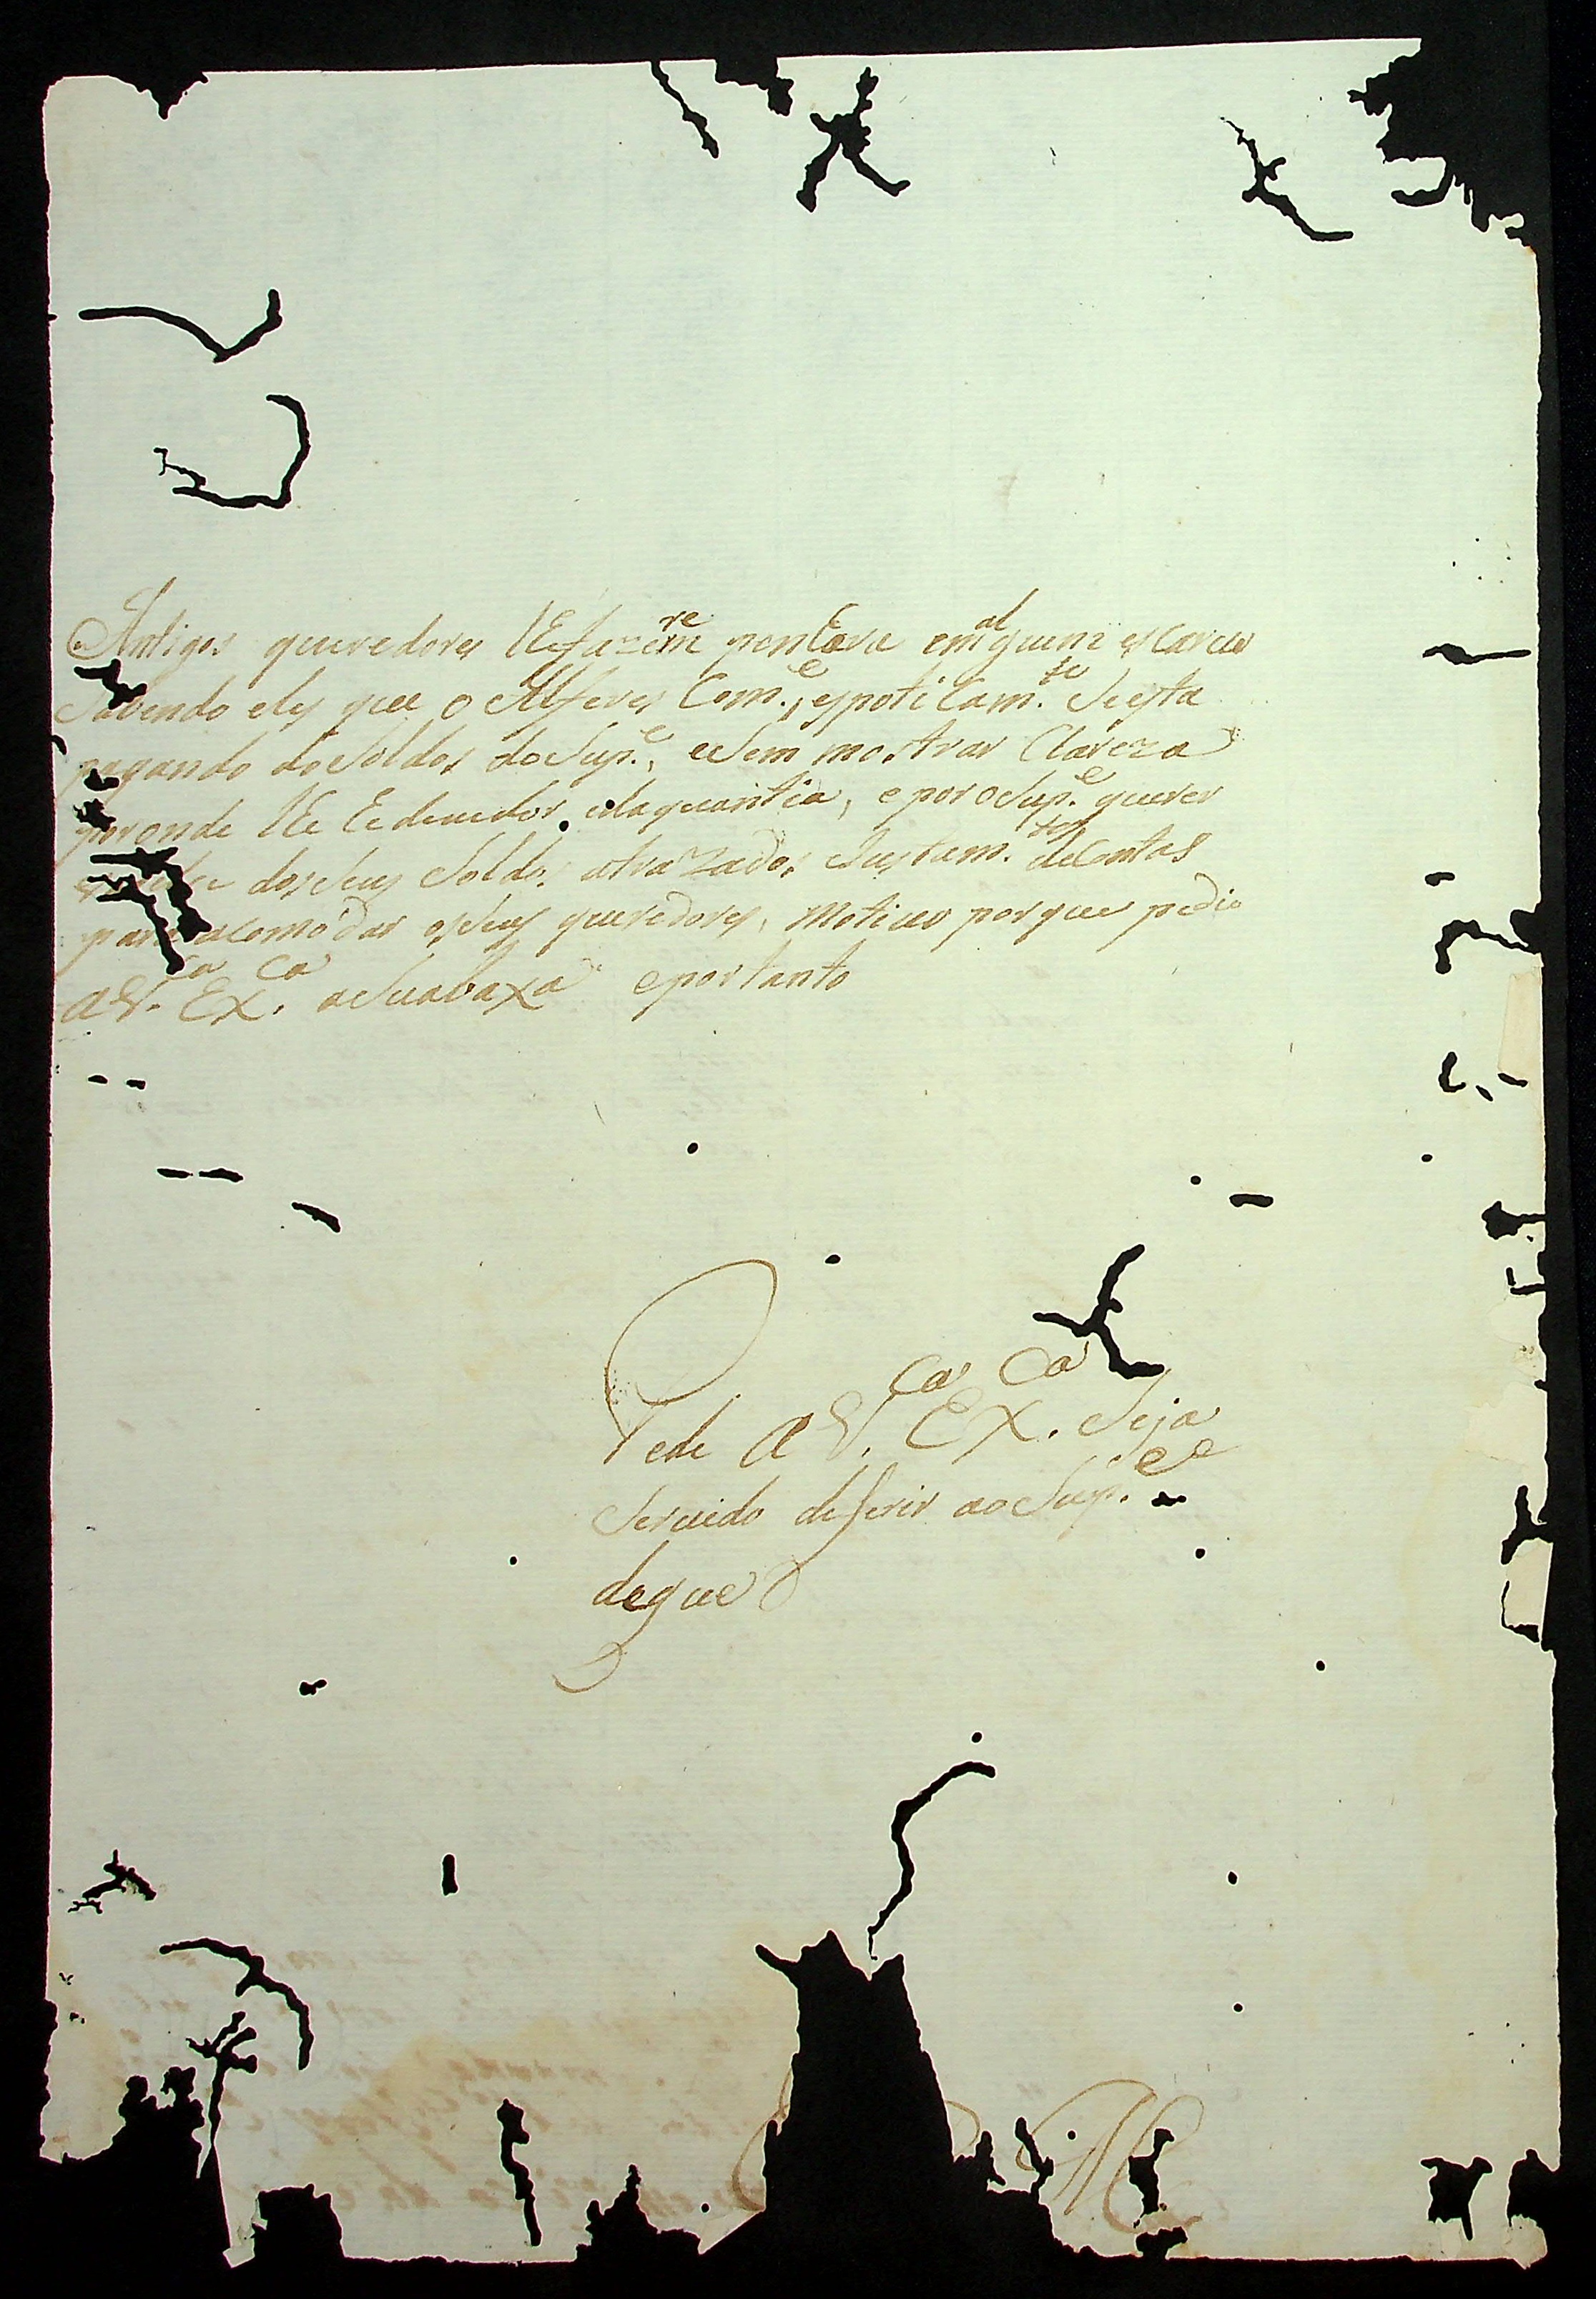 Antigos queredores lhefazerem penhora emalguem escaravo
Sabendo eles que o Alferes Com.e, espoticam.te Seesta
pagando doSoldos doSup.e, eSem mostrar Clareza
poronde lhe he devedor, edaquantia, e poroSup.e querer
dosSeus Soldos atrazados Justam.
para acomodar osSeus queredores, Motivo porque pedio
aV. Ex.ca aSuabaxa eportanto
Pede a V.ca Ex.ca Seja
Servido deferir aoSup.e
deque